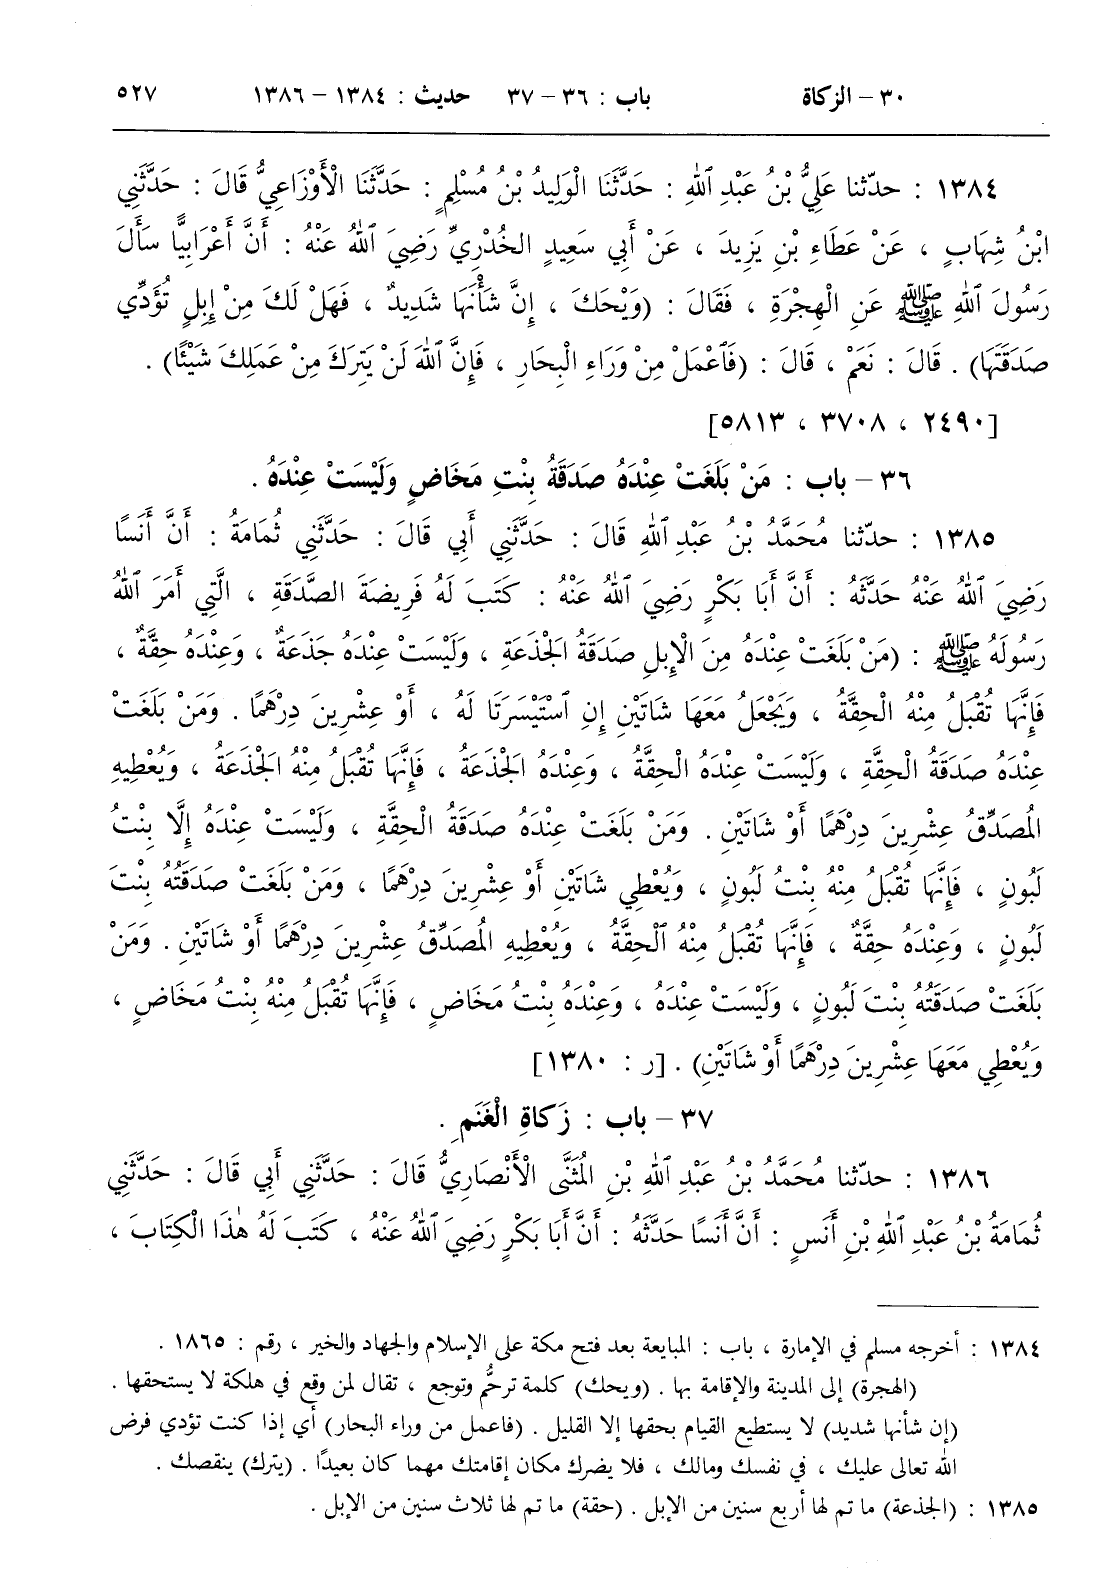 ٣٠ – الزكاة باب : ٣٦ – ٣٧ حديث : ١٣٨٤ – ١٣٨٦ ٥٢٧
١٣٨٤ : حدّثنا عَلِيُّ بْنُ عَبْدِ ٱللهِ : حَدَّثَنَا الْوَلِيدُ بْنُ مُسْلِمٍ : حَدَّثَنَا الْأَوْزَاعِيُّ قَالَ : حَدَّثَنِي
ابْنُ شِهَابٍ ، عَنْ عَطَاءِ بْنِ يَزِيدَ ، عَنْ أَبِي سَعِيدٍ الخُدْرِيِّ رَضِيَ ٱللهُ عَنْهُ : أَنَّ أَعْرَابِيًّا سَأَلَ
رَسُولَ ٱللهِ ﷺ عَنِ الْهِجْرَةِ ، فَقَالَ : (وَيْحَكَ ، إِنَّ شَأْنَهَا شَدِيدٌ ، فَهَلْ لَكَ مِنْ إِبِلٍ تُؤَدِّي
صَدَقَتَهَا) . قَالَ : نَعَمْ ، قَالَ : (فَٱعْمَلْ مِنْ وَرَاءِ الْبِحَارِ ، فَإِنَّ ٱللهَ لَنْ يَتِرَكَ مِنْ عَمَلِكَ شَيْئًا) .
[٢٤٩٠ ، ٣٧٠٨ ، ٥٨١٣]
٣٦ – باب : مَنْ بَلَغَتْ عِنْدَهُ صَدَقَةُ بِنْتِ مَخَاضٍ وَلَيْسَتْ عِنْدَهُ .
١٣٨٥ : حدّثنا مُحَمَّدُ بْنُ عَبْدِ ٱللهِ قَالَ : حَدَّثَنِي أَبِي قَالَ : حَدَّثَنِي ثُمَامَةُ : أَنَّ أَنَسًا
رَضِيَ ٱللهُ عَنْهُ حَدَّثَهُ : أَنَّ أَبَا بَكْرٍ رَضِيَ ٱللهُ عَنْهُ : كَتَبَ لَهُ فَرِيضَةَ الصَّدَقَةِ ، الَّتِي أَمَرَ ٱللهُ
رَسُولَهُ ﷺ : (مَنْ بَلَغَتْ عِنْدَهُ مِنَ الْإِبِلِ صَدَقَةُ الجَذَعَةِ ، وَلَيْسَتْ عِنْدَهُ جَذَعَةٌ ، وَعِنْدَهُ حِقَّةٌ ،
فَإِنَّهَا تُقْبَلُ مِنْهُ الْحِقَّةُ ، وَيَجْعَلُ مَعَهَا شَاتَيْنِ إِنِ ٱسْتَيْسَرَتَا لَهُ ، أَوْ عِشْرِينَ دِرْهَمًا . وَمَنْ بَلَغَتْ
عِنْدَهُ صَدَقَةُ الْحِقَّةِ ، وَلَيْسَتْ عِنْدَهُ الْحِقَّةُ ، وَعِنْدَهُ الجَذَعَةُ ، فَإِنَّهَا تُقْبَلُ مِنْهُ الجَذَعَةُ ، وَيُعْطِيهِ
المُصَدِّقُ عِشْرِينَ دِرْهَمًا أَوْ شَاتَيْنِ . وَمَنْ بَلَغَتْ عِنْدَهُ صَدَقَةُ الْحِقَّةِ ، وَلَيْسَتْ عِنْدَهُ إِلَّا بِنْتُ
لَبُونٍ ، فَإِنَّهَا تُقْبَلُ مِنْهُ بِنْتُ لَبُونٍ ، وَيُعْطِي شَاتَيْنِ أَوْ عِشْرِينَ دِرْهَمًا ، وَمَنْ بَلَغَتْ صَدَقَتُهُ بِنْتَ
لَبُونٍ ، وَعِنْدَهُ حِقَّةٌ ، فَإِنَّهَا تُقْبَلُ مِنْهُ ٱلْحِقَّةُ ، وَيُعْطِيهِ المُصَدِّقُ عِشْرِينَ دِرْهَمًا أَوْ شَاتَيْنِ . وَمَنْ
بَلَغَتْ صَدَقَتُهُ بِنْتَ لَبُونٍ ، وَلَيْسَتْ عِنْدَهُ ، وَعِنْدَهُ بِنْتُ مَخَاضٍ ، فَإِنَّهَا تُقْبَلُ مِنْهُ بِنْتُ مَخَاضٍ ،
وَيُعْطِي مَعَهَا عِشْرِينَ دِرْهَمًا أَوْ شَاتَيْنِ) . [ر : ١٣٨٠]
٣٧ – باب : زَكاةِ الْغَنَمِ .
١٣٨٦ : حدّثنا مُحَمَّدُ بْنُ عَبْدِ ٱللهِ بْنِ المُثَنَّى الْأَنْصَارِيُّ قَالَ : حَدَّثَنِي أَبِي قَالَ : حَدَّثَنِي
ثُمَامَةُ بْنُ عَبْدِ ٱللهِ بْنِ أَنَسٍ : أَنَّ أَنَسًا حَدَّثَهُ : أَنَّ أَبَا بَكْرٍ رَضِيَ ٱللهُ عَنْهُ ، كَتَبَ لَهُ هٰذَا الْكِتَابَ ،
١٣٨٤ : أخرجه مسلم في الإمارة ، باب : المبايعة بعد فتح مكة على الإسلام والجهاد والخير ، رقم : ١٨٦٥ .
(الهجرة) إلى المدينة والإقامة بها . (ويحك) كلمة ترحُّم وتوجع ، تقال لمن وقع في هلكة لا يستحقها .
(إن شأنها شديد) لا يستطيع القيام بحقها إلا القليل . (فاعمل من وراء البحار) أي إذا كنت تؤدي فرض
الله تعالى عليك ، في نفسك ومالك ، فلا يضرك مكان إقامتك مهما كان بعيدًا . (يترك) ينقصك .
١٣٨٥ : (الجذعة) ما تم لها أربع سنين من الإبل . (حقة) ما تم لها ثلاث سنين من الإبل .